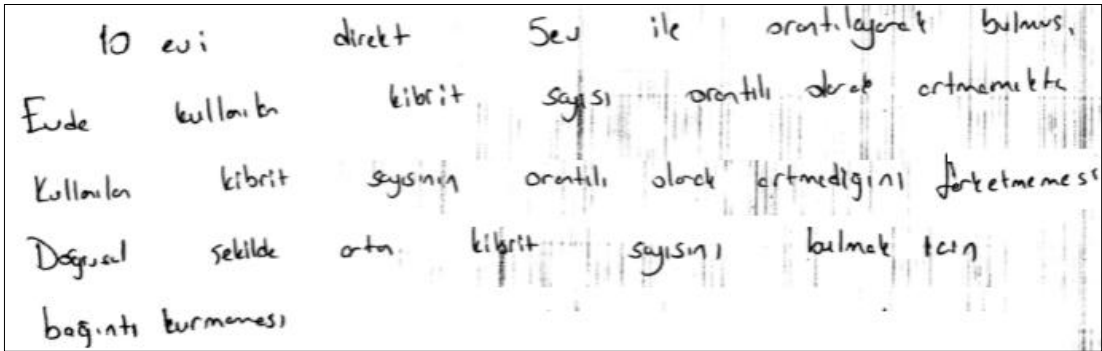 10 evi direkt 5ev ile orantılayarak bulmuş.
Evde kullanılan kibrit sayısı orantılı olarak artmamakta
Kullanılan kibrit sayısının orantılı olarak artmadığını farketmemesi
Doğrusal şekilde artan kibrit sayısını bulmak için
bağıntı kurmaması